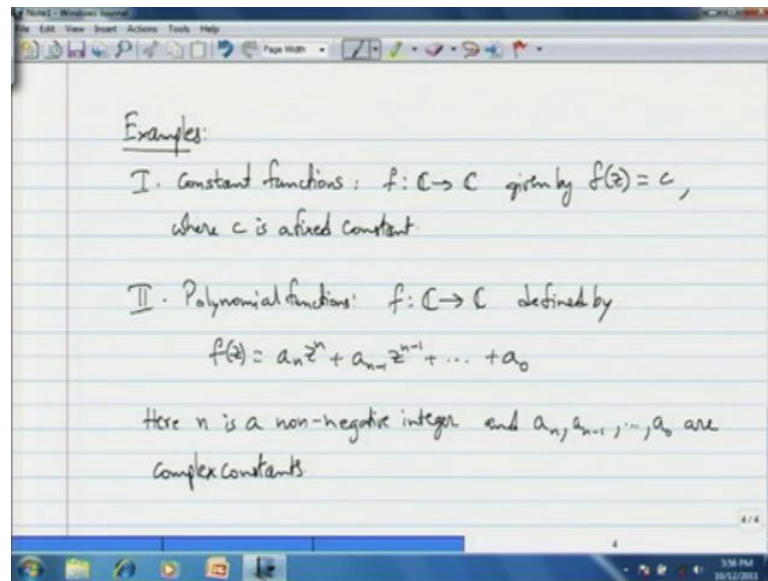 Note1 - Windows Journal
File Edit View Insert Actions Tools Help
Page Width
Examples:
I. Constant functions: f: ℂ→ ℂ given by f(z) = c,
where c is a fixed constant.
II. Polynomial functions: f: ℂ→ ℂ defined by
f(z) = aₙzⁿ + aₙ₋₁zⁿ⁻¹ + ... + a₀
Here n is a non-negative integer and aₙ, aₙ₋₁, ..., a₀ are
complex constants.
4/4
4
3:56 PM
10/12/2011